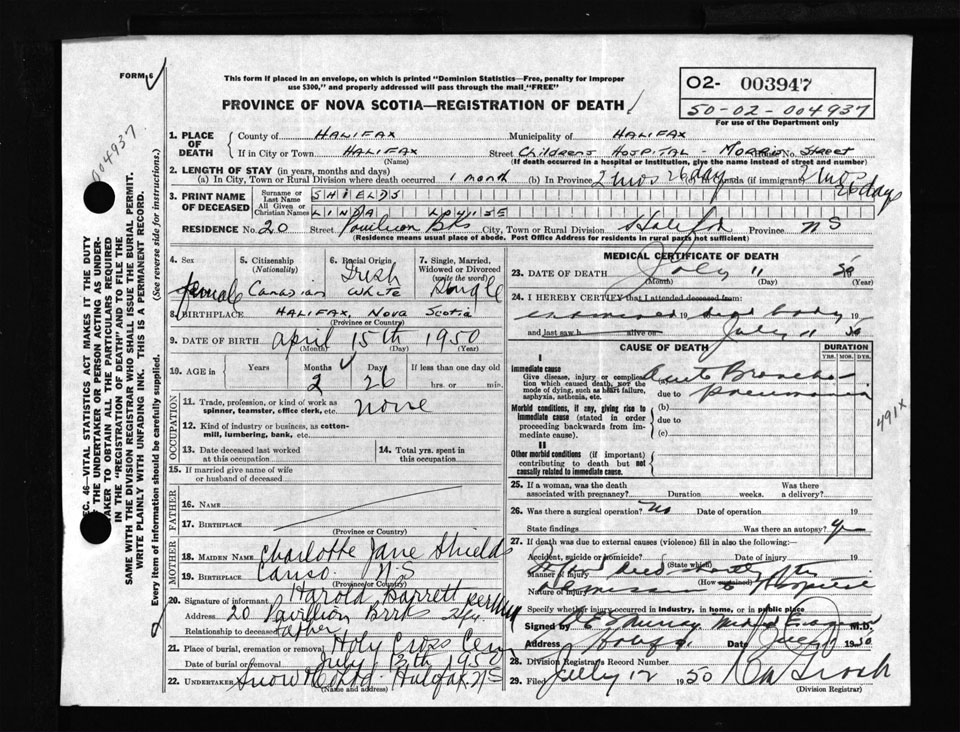 FORM 6
This form if placed in an envelope, on which is printed "Dominion Statistics—Free, penalty for improper
use $300," and properly addressed will pass through the mail "FREE"
PROVINCE OF NOVA SCOTIA—REGISTRATION OF DEATH
02- 003947
50-02-004937
For use of the Department only
004937
SEC. 46—VITAL STATISTICS ACT MAKES IT THE DUTY
OF THE UNDERTAKER OR PERSON ACTING AS UNDER-
TAKER TO OBTAIN ALL THE PARTICULARS REQUIRED
IN THE "REGISTRATION OF DEATH" AND TO FILE THE
SAME WITH THE DIVISION REGISTRAR WHO SHALL ISSUE THE BURIAL PERMIT.
WRITE PLAINLY WITH UNFADING INK. THIS IS A PERMANENT RECORD.
Every item of information should be carefully supplied. (See reverse side for instructions.)
1. PLACE OF DEATH County of HALIFAX Municipality of HALIFAX
If in City or Town HALIFAX Street CHILDRENS HOSPITAL - MORRIS House No. STREET
(Name) (If death occurred in a hospital or institution, give the name instead of street and number)
2. LENGTH OF STAY (in years, months and days)
(a) In City, Town or Rural Division where death occurred 1 month (b) In Province 2 mos 26 day (c) In Canada (if immigrant) 2 mos 26 days
3. PRINT NAME OF DECEASED Surname or Last Name SHIELDS
All Given or Christian Names LINDA LOUISE
RESIDENCE No. 20 Street Pavilion Bks City, Town or Rural Division Halifax Province N S
(Residence means usual place of abode. Post Office Address for residents in rural parts not sufficient)
4. Sex female
5. Citizenship (Nationality) Canadian
6. Racial Origin Irish White
7. Single, Married, Widowed or Divorced (write the word) Single
8. BIRTHPLACE HALIFAX, NOVA SCOTIA
(Province or Country)
9. DATE OF BIRTH April 15th 1950
(Month) (Day) (Year)
10. AGE in Years Months 2 Days 26 If less than one day old hrs. or min.
OCCUPATION
11. Trade, profession, or kind of work as spinner, teamster, office clerk, etc. none
12. Kind of industry or business, as cotton-mill, lumbering, bank, etc.
13. Date deceased last worked at this occupation
14. Total yrs. spent in this occupation
15. If married give name of wife or husband of deceased
FATHER
16. NAME
17. BIRTHPLACE
(Province or Country)
MOTHER
18. MAIDEN NAME Charlotte Jane Shields
19. BIRTHPLACE Canso. N.S
(Province or Country)
20. Signature of informant Harold Barrett
Address 20 Pavillion Brks Hfx
Relationship to deceased father
21. Place of burial, cremation or removal Holy Cross Cem
Date of burial or removal July 12th 1950
22. UNDERTAKER Snow & Co Ltd. Halifax, N S
(Name and address)
MEDICAL CERTIFICATE OF DEATH
23. DATE OF DEATH July 11 50
(Month) (Day) (Year)
24. I HEREBY CERTIFY that I attended deceased from:
examined 19 dead body 19
and last saw h alive on July 11 50
CAUSE OF DEATH DURATION
YRS. MOS. DYS.
I
Immediate cause
Give disease, injury or complication which caused death, not the mode of dying, such as heart failure, asphyxia, asthenia, etc.
(a) Acute Broncho
due to pneumonia
Morbid conditions, if any, giving rise to immediate cause (stated in order proceeding backwards from immediate cause).
(b)
due to
(c)
II
Other morbid conditions (if important) contributing to death but not causally related to immediate cause.
491X
25. If a woman, was the death associated with pregnancy? Duration weeks. Was there a delivery?
26. Was there a surgical operation? No Date of operation 19
State findings Was there an autopsy? Yes
27. If death was due to external causes (violence) fill in also the following:—
Accident, suicide or homicide? (State which) Date of injury 19
Manner of injury died shortly after
(How sustained)
Nature of injury admission to Hospital
Specify whether injury occurred in industry, in home, or in public place
Signed by Murray Medical Examiner M.D.
Address Date July 1950
28. Division Registrar's Record Number
29. Filed July 12 1950
(Division Registrar)